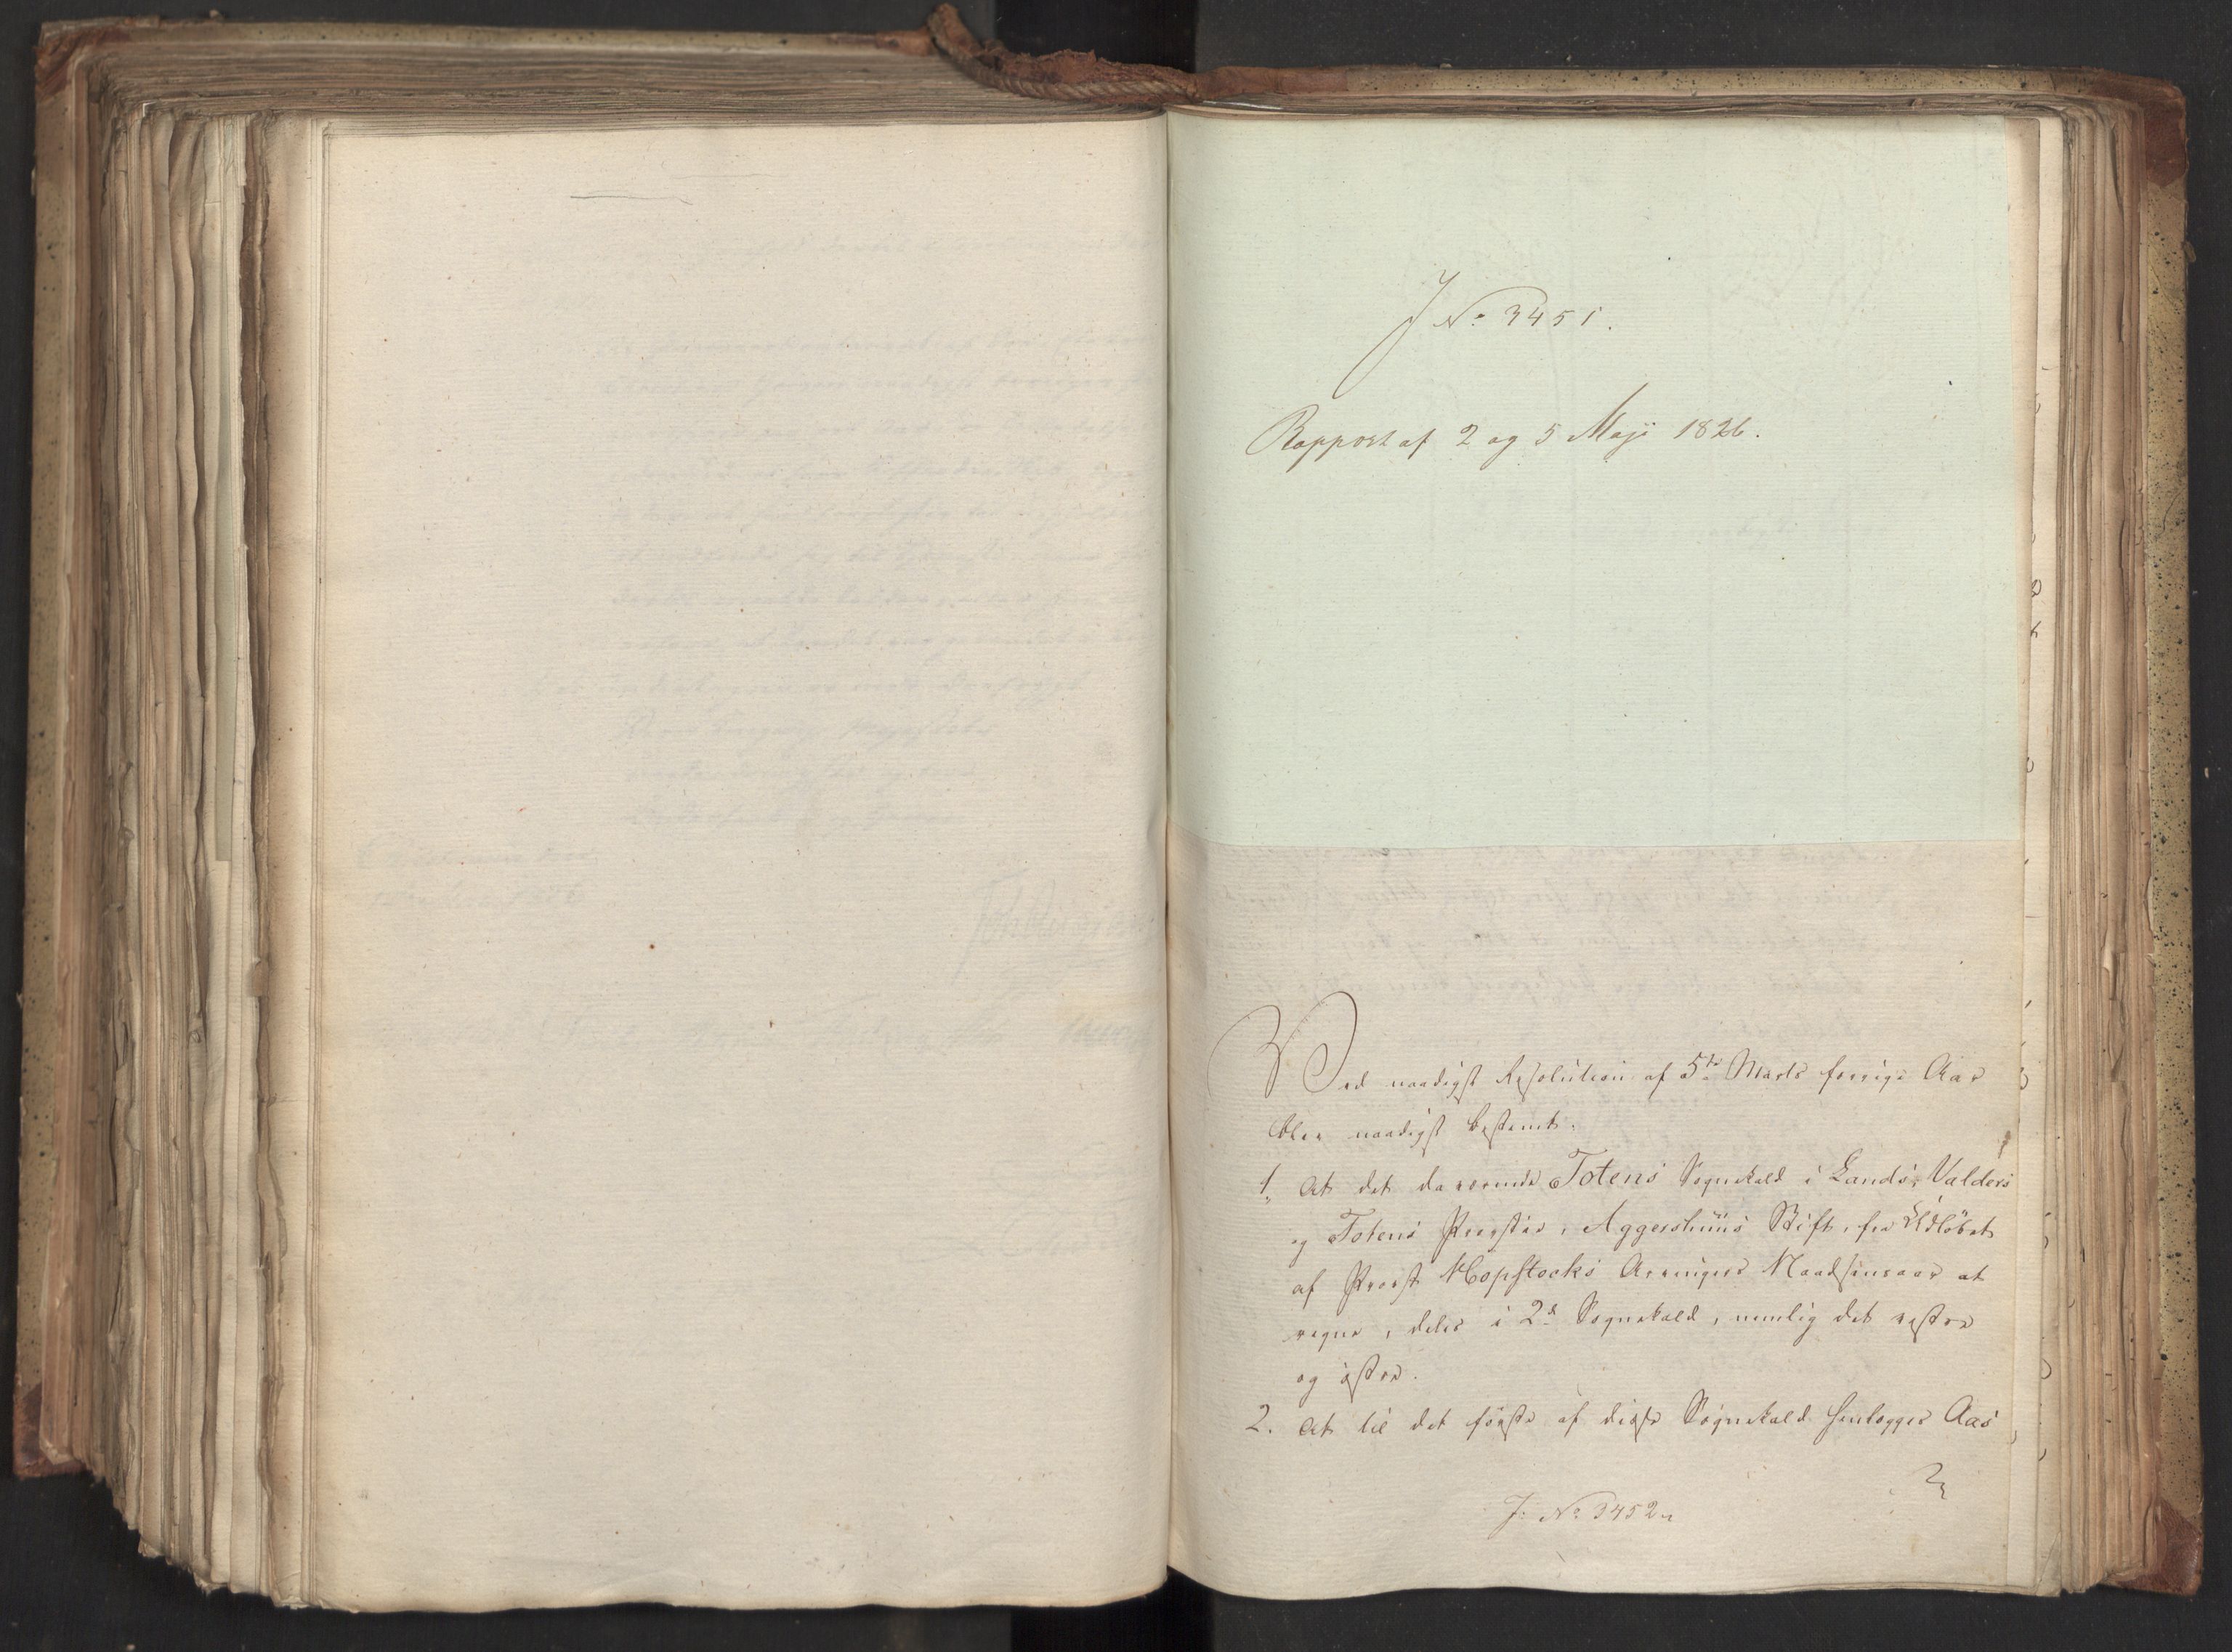 J No 3451.
Rapport af 2 og 5 Maji 1826.
Ved naadigst Resolution af 5te Marts forrige Aar
blev naadigst bestemt:
1, At det daværende Totens Sognekald i Lands, Valders
og Totens Provstie, Aggershuus Stift, fra Udløbet
af Provst Hopstocks Arvingers Naadsensaar at
regne, deles i 2de Sognekald, nemlig det vestre
og østre.
2. At til det første af disse Sognekald henlægges Aas
J: No 3452